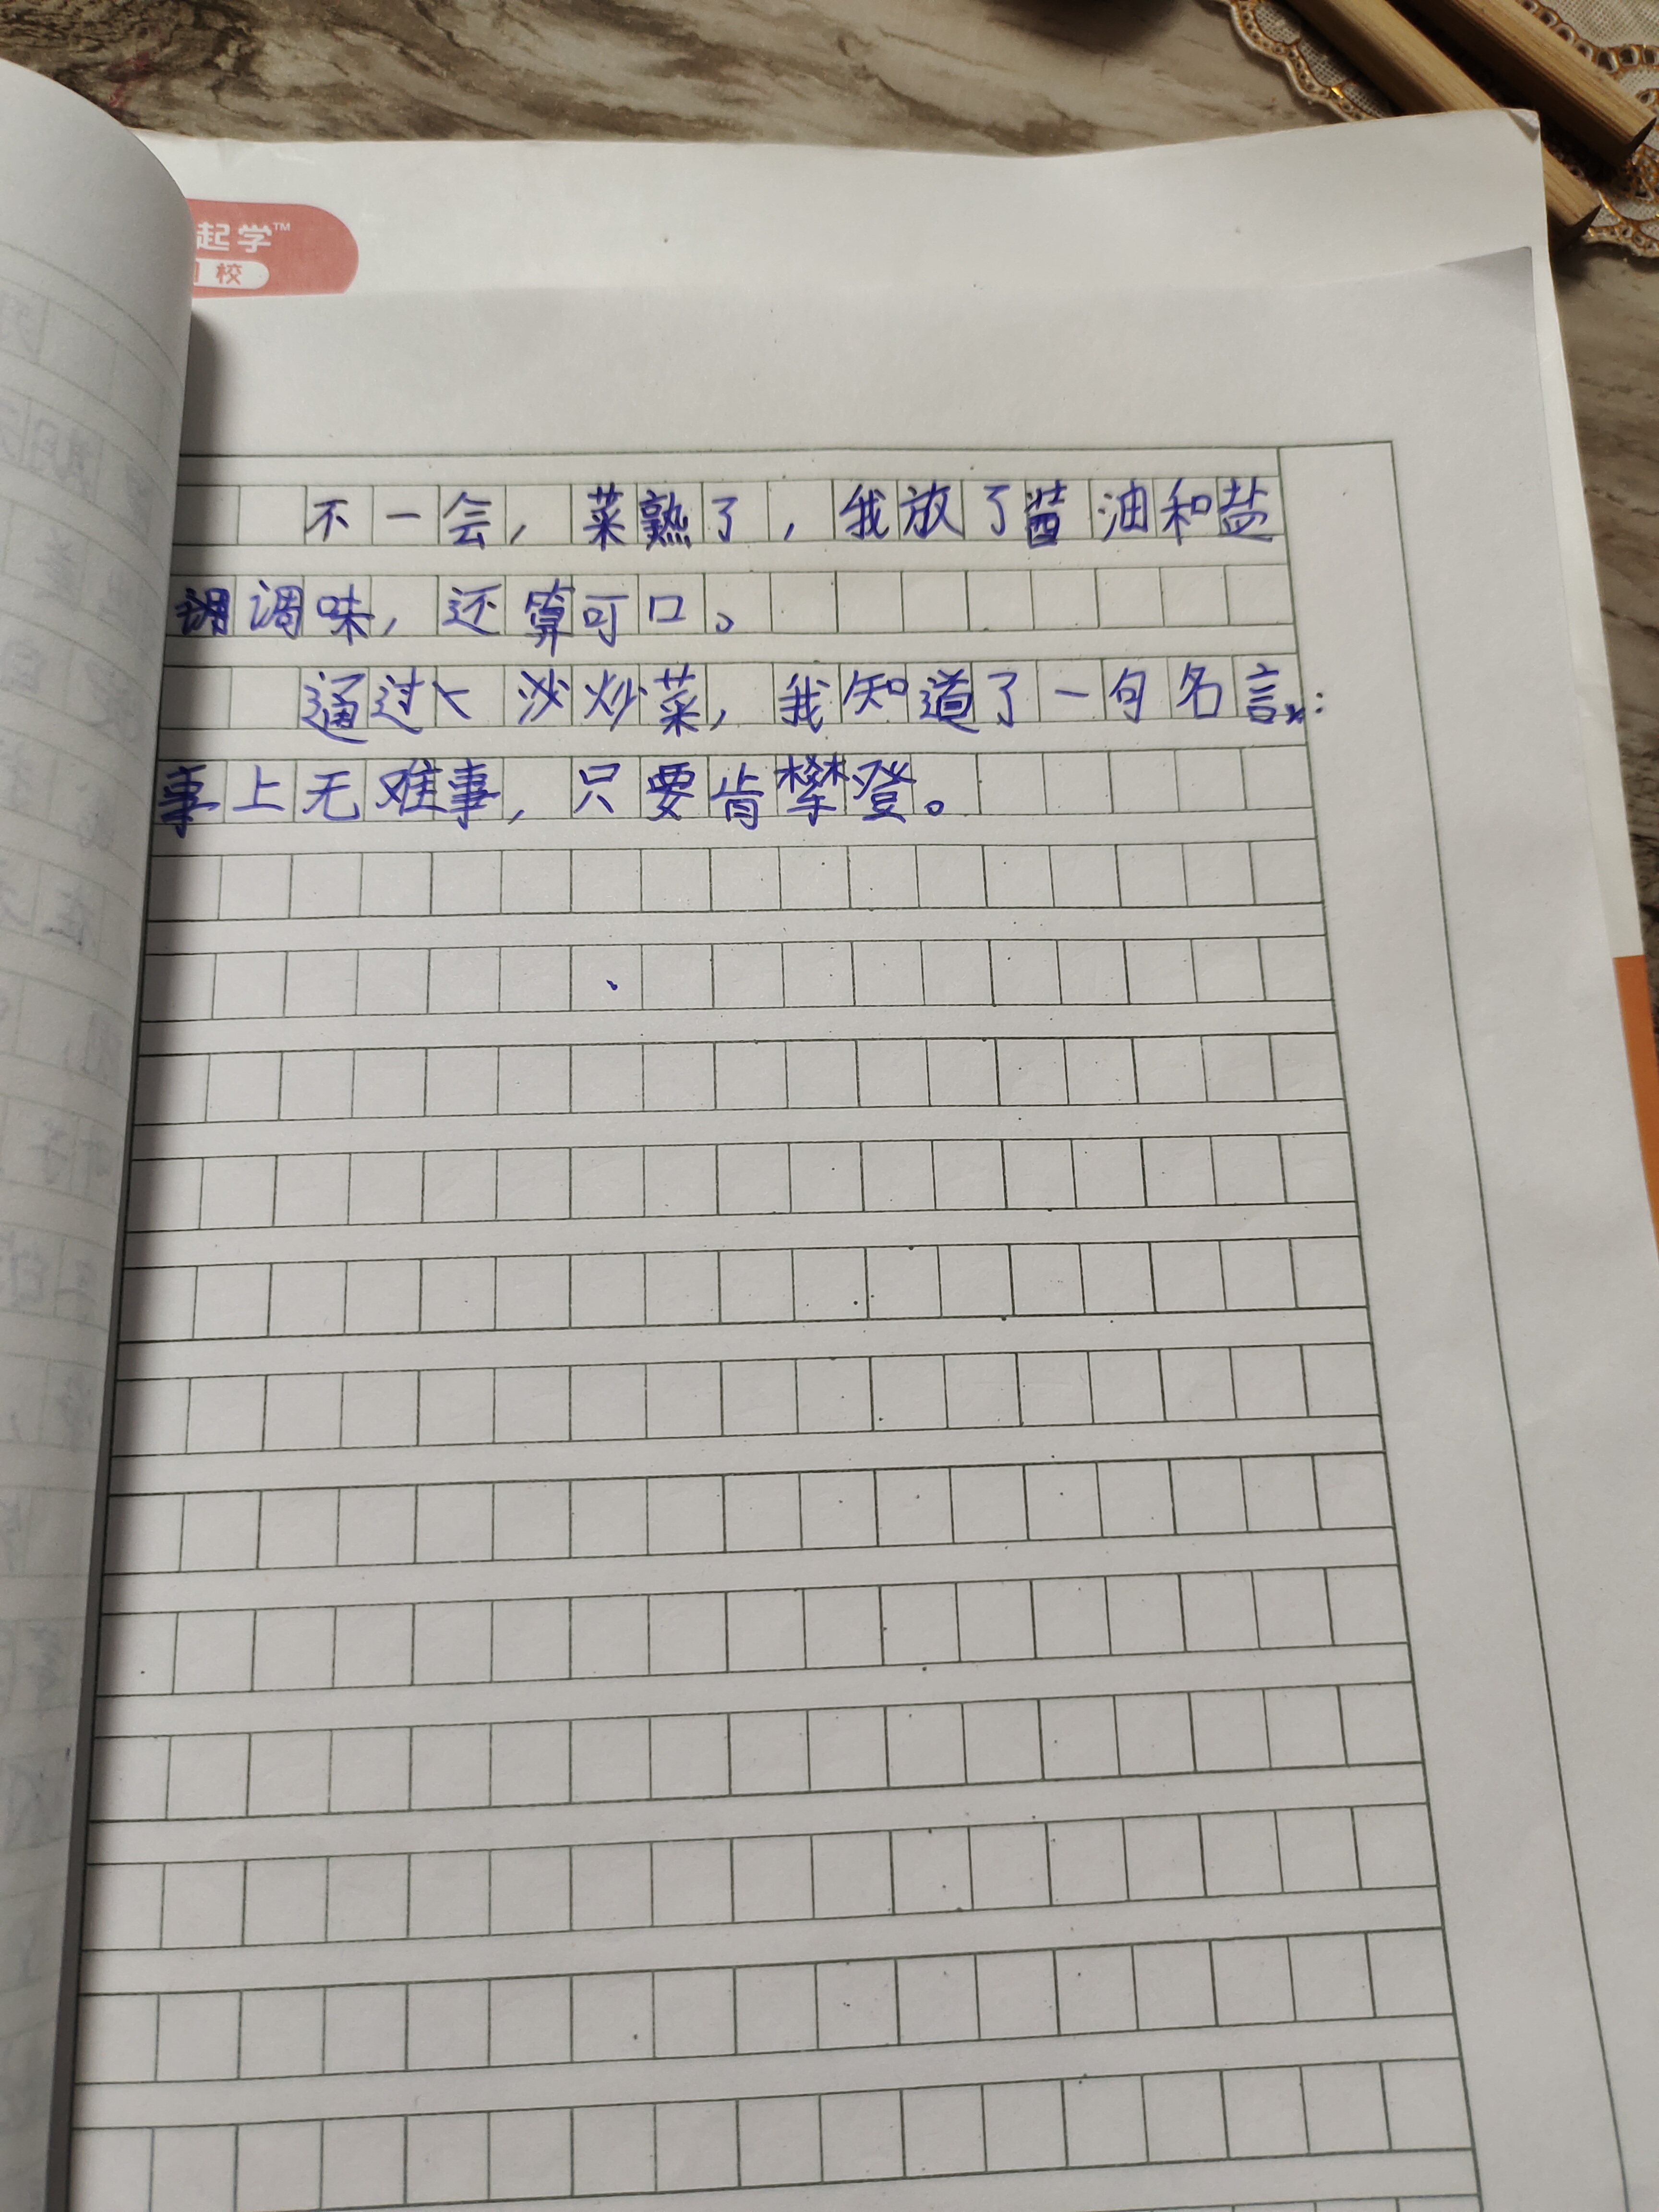 起学™
校
不一会，菜熟了，我放了酱油和盐
调调味，还算可口。
通过炒菜，我知道了一句名言：
事上无难事，只要肯攀登。